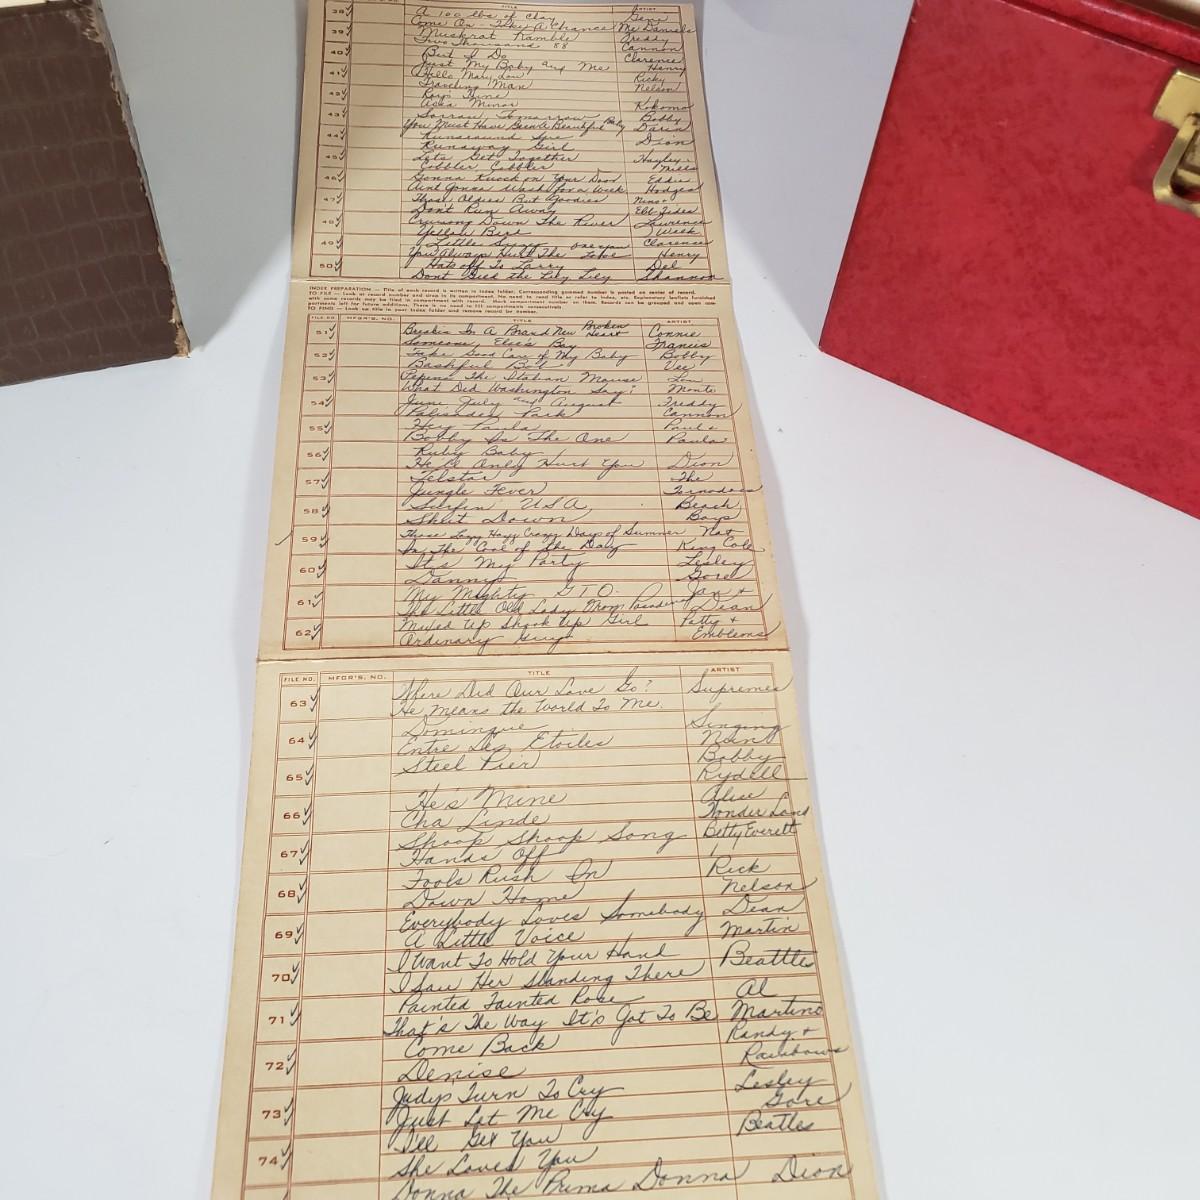 TITLE ARTIST
38 A 100 lbs of Clay Gene
Come On - Take A Chance Mc Daniels
39 Muskrat Ramble Freddy
Two Thousand 88 Cannon
40 But I Do Clarence
Just My Baby and Me Henry
41 Hello Mary Lou Ricky
Traveling Man Nelson
42
Asia Minor Kokomo
43 Sorrow Tomorrow Bobby
You Must Have Been A Beautiful Baby Darin
44 Runaround Sue Dion
Runaway Girl
45 Lets Get Together Hayley
Cobbler Cobbler Mills
46 Gonna Knock on Your Door Eddie
Aint Gonna Wash for a Week Hodges
47 Those Oldies But Goodies Nino +
Don't Run Away Ebb Tides
48 Cruising Down The River Lawrence
Yellow Bird Welk
49 Little Suzy Clarence
You Always Hurt The one you Love Henry
50 Hats off To Larry Del
Dont Gild the Lily Lily Shannon
INDEX PREPARATION — Title of each record is written in index folder. Corresponding gummed number is posted on center of record.
TO FILE — Look at record number and drop in its compartment. No need to read title or refer to index, etc. Explanatory leaflets furnished
with some records may be filed in compartment with record. Mark compartment number on them. Records can be grouped and open com-
partments left for future additions. There is no need to fill compartments consecutively.
TO FIND — Look up title in your index folder and remove record by number.
FILE NO. MFGR'S. NO. TITLE ARTIST
51 Breakin In A Brand New Broken Heart Connie
Someone Else's Boy Francis
52 Take Good Care of My Baby Bobby
Bashful Bob Vee
53 Pepino The Italian Mouse Lou
What Did Washington Say? Monte
54 June July and August Freddy
Palisades Park Cannon
55 Hey Paula Paul &
Bobby Is The One Paula
56 Ruby Baby Dion
He'll Only Hurt You
57 Telstar The
Jungle Fever Tornadoes
58 Surfin' USA Beach
Shut Down Boys
59 Those Lazy Hazy Crazy Days of Summer Nat
In The Cool of The Day King Cole
60 It's My Party Lesley
Danny Gore
61 My Mighty G.T.O. Jan +
The Little Old Lady From Pasadena Dean
62 Mixed Up Shook Up Girl Patty +
Ordinary Guy Emblems
FILE NO. MFGR'S. NO. TITLE ARTIST
63 Where Did Our Love Go? Supremes
He Means the World To Me.
64 Dominque Singing
Entre Les Etoiles Nun
65 Steel Pier Bobby
Rydell
66 He's Mine Alice
Cha Linde Wonder Land
67 Shoop Shoop Song Betty Everett
Hands Off
68 Fools Rush In Rick
Down Home Nelson
69 Everybody Loves Somebody Dean
A Little Voice Martin
70 I Want To Hold Your Hand Beattles
I Saw Her Standing There
71 Painted Tainted Rose Al
That's The Way It's Got To Be Martino
72 Come Back Randy +
Denise Rainbows
73 Judys Turn To Cry Lesley
Just Let Me Cry Gore
74 I'll Get You Beatles
She Loves You
Donna The Prima Donna Dion